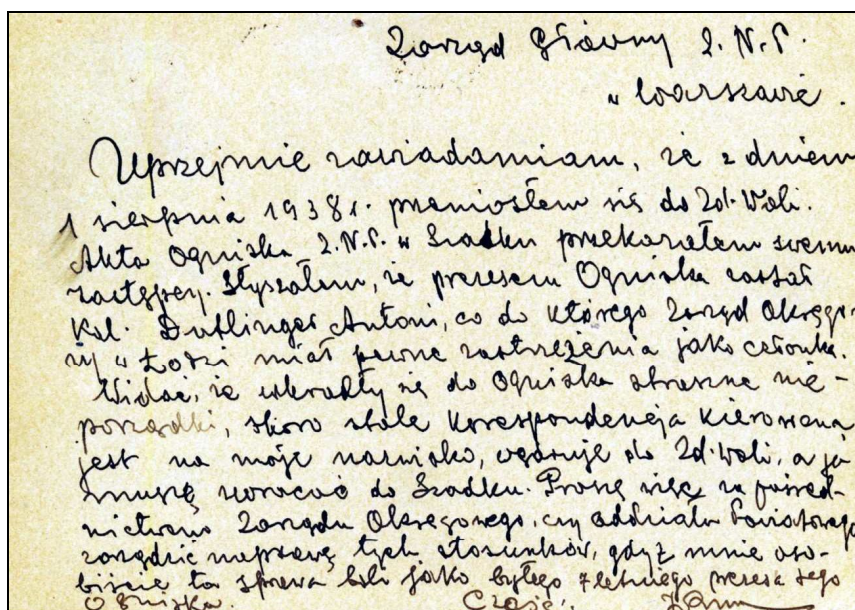 Zarząd Główny Z.N.P.
w Warszawie.
Uprzejmie zawiadamiam, że z dniem
1 sierpnia 1938 r. przeniosłem się do Zd. Woli.
Akta Ogniska Z.N.P. w Szadku przekazałem swemu
zastępcy. Słyszałem, że prezesem Ogniska został
Kol. Dutlinger Antoni, co do którego Zarząd Okręgo-
wy w Łodzi miał pewne zastrzeżenia jako członka.
Widać, że wkradły się do Ogniska straszne nie-
porządki, skoro stale korespondencja kierowana
jest na moje nazwisko, wędruje do Zd. Woli, a ja
muszę zwracać do Szadku. Proszę więc za pośred-
nictwem Zarządu Okręgowego, czy oddziału Powiatowego
zarządzić naprawę tych stosunków, gdyż mnie oso-
biście ta sprawa boli jako byłego 7 letniego prezesa tego
Ogniska. Cześć!